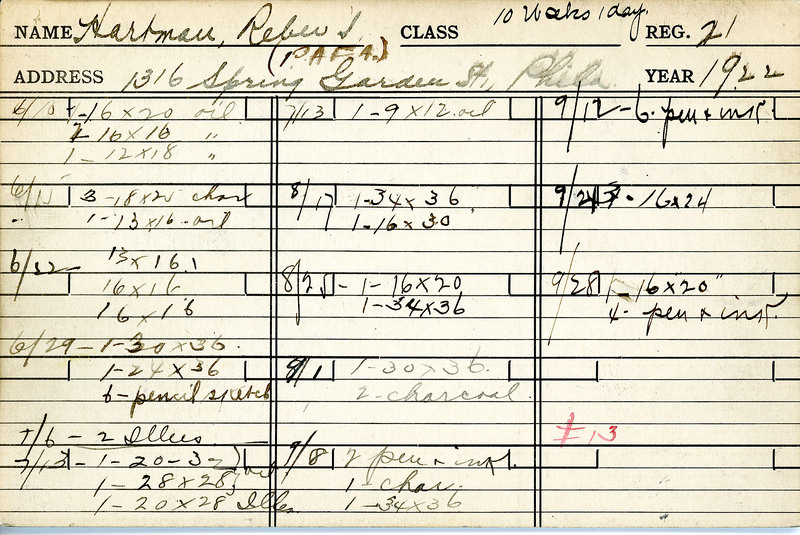 10 Weeks 1 day.
NAME Hartman, Reber S. CLASS REG. 21
(PAFA.)
ADDRESS 1316 Spring Garden St, Phila YEAR 1922
6/10 1-16x20 oil
16x16 "
1-12x18 "
6/15 3-18x25 char
" 1-13x16-oil
6/22 13x16
16x16
16x16
6/29-1-30x36.
1-24x36
6-pencil sketch
7/6 - 2 Illus.
7/13-1-20-32
1-28x28 oil
1-20x28 Illus.
7/13 1-9x12.oil
8/17 1-34x36
1-16x30
8/25-1-16x20
1-34x36
9/1 1-30x36.
2-charcoal
9/8 2 pen & ink.
1-char.
1-34x36
9/12-6. pen & ink.
9/21 3-16x24
9/28 1-16x20"
4- pen & ink.
13